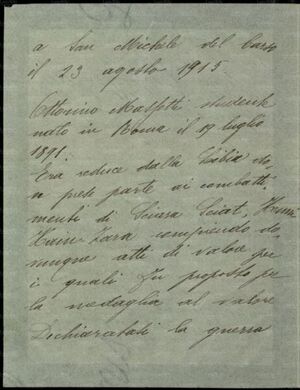 a San Michele del Carso
il 23 agosto 1915
Ottorino studente
nato in Roma il 19 luglio
1891.
Era reduce dalla Libia do-
ve prese parte ai combatti-
menti di Sciara Sciat, Henni
Hain Zara compiendo do-
vunque atti di valore per
i quali fu proposto per
la medaglia al valore
Dichiaratasi la guerra